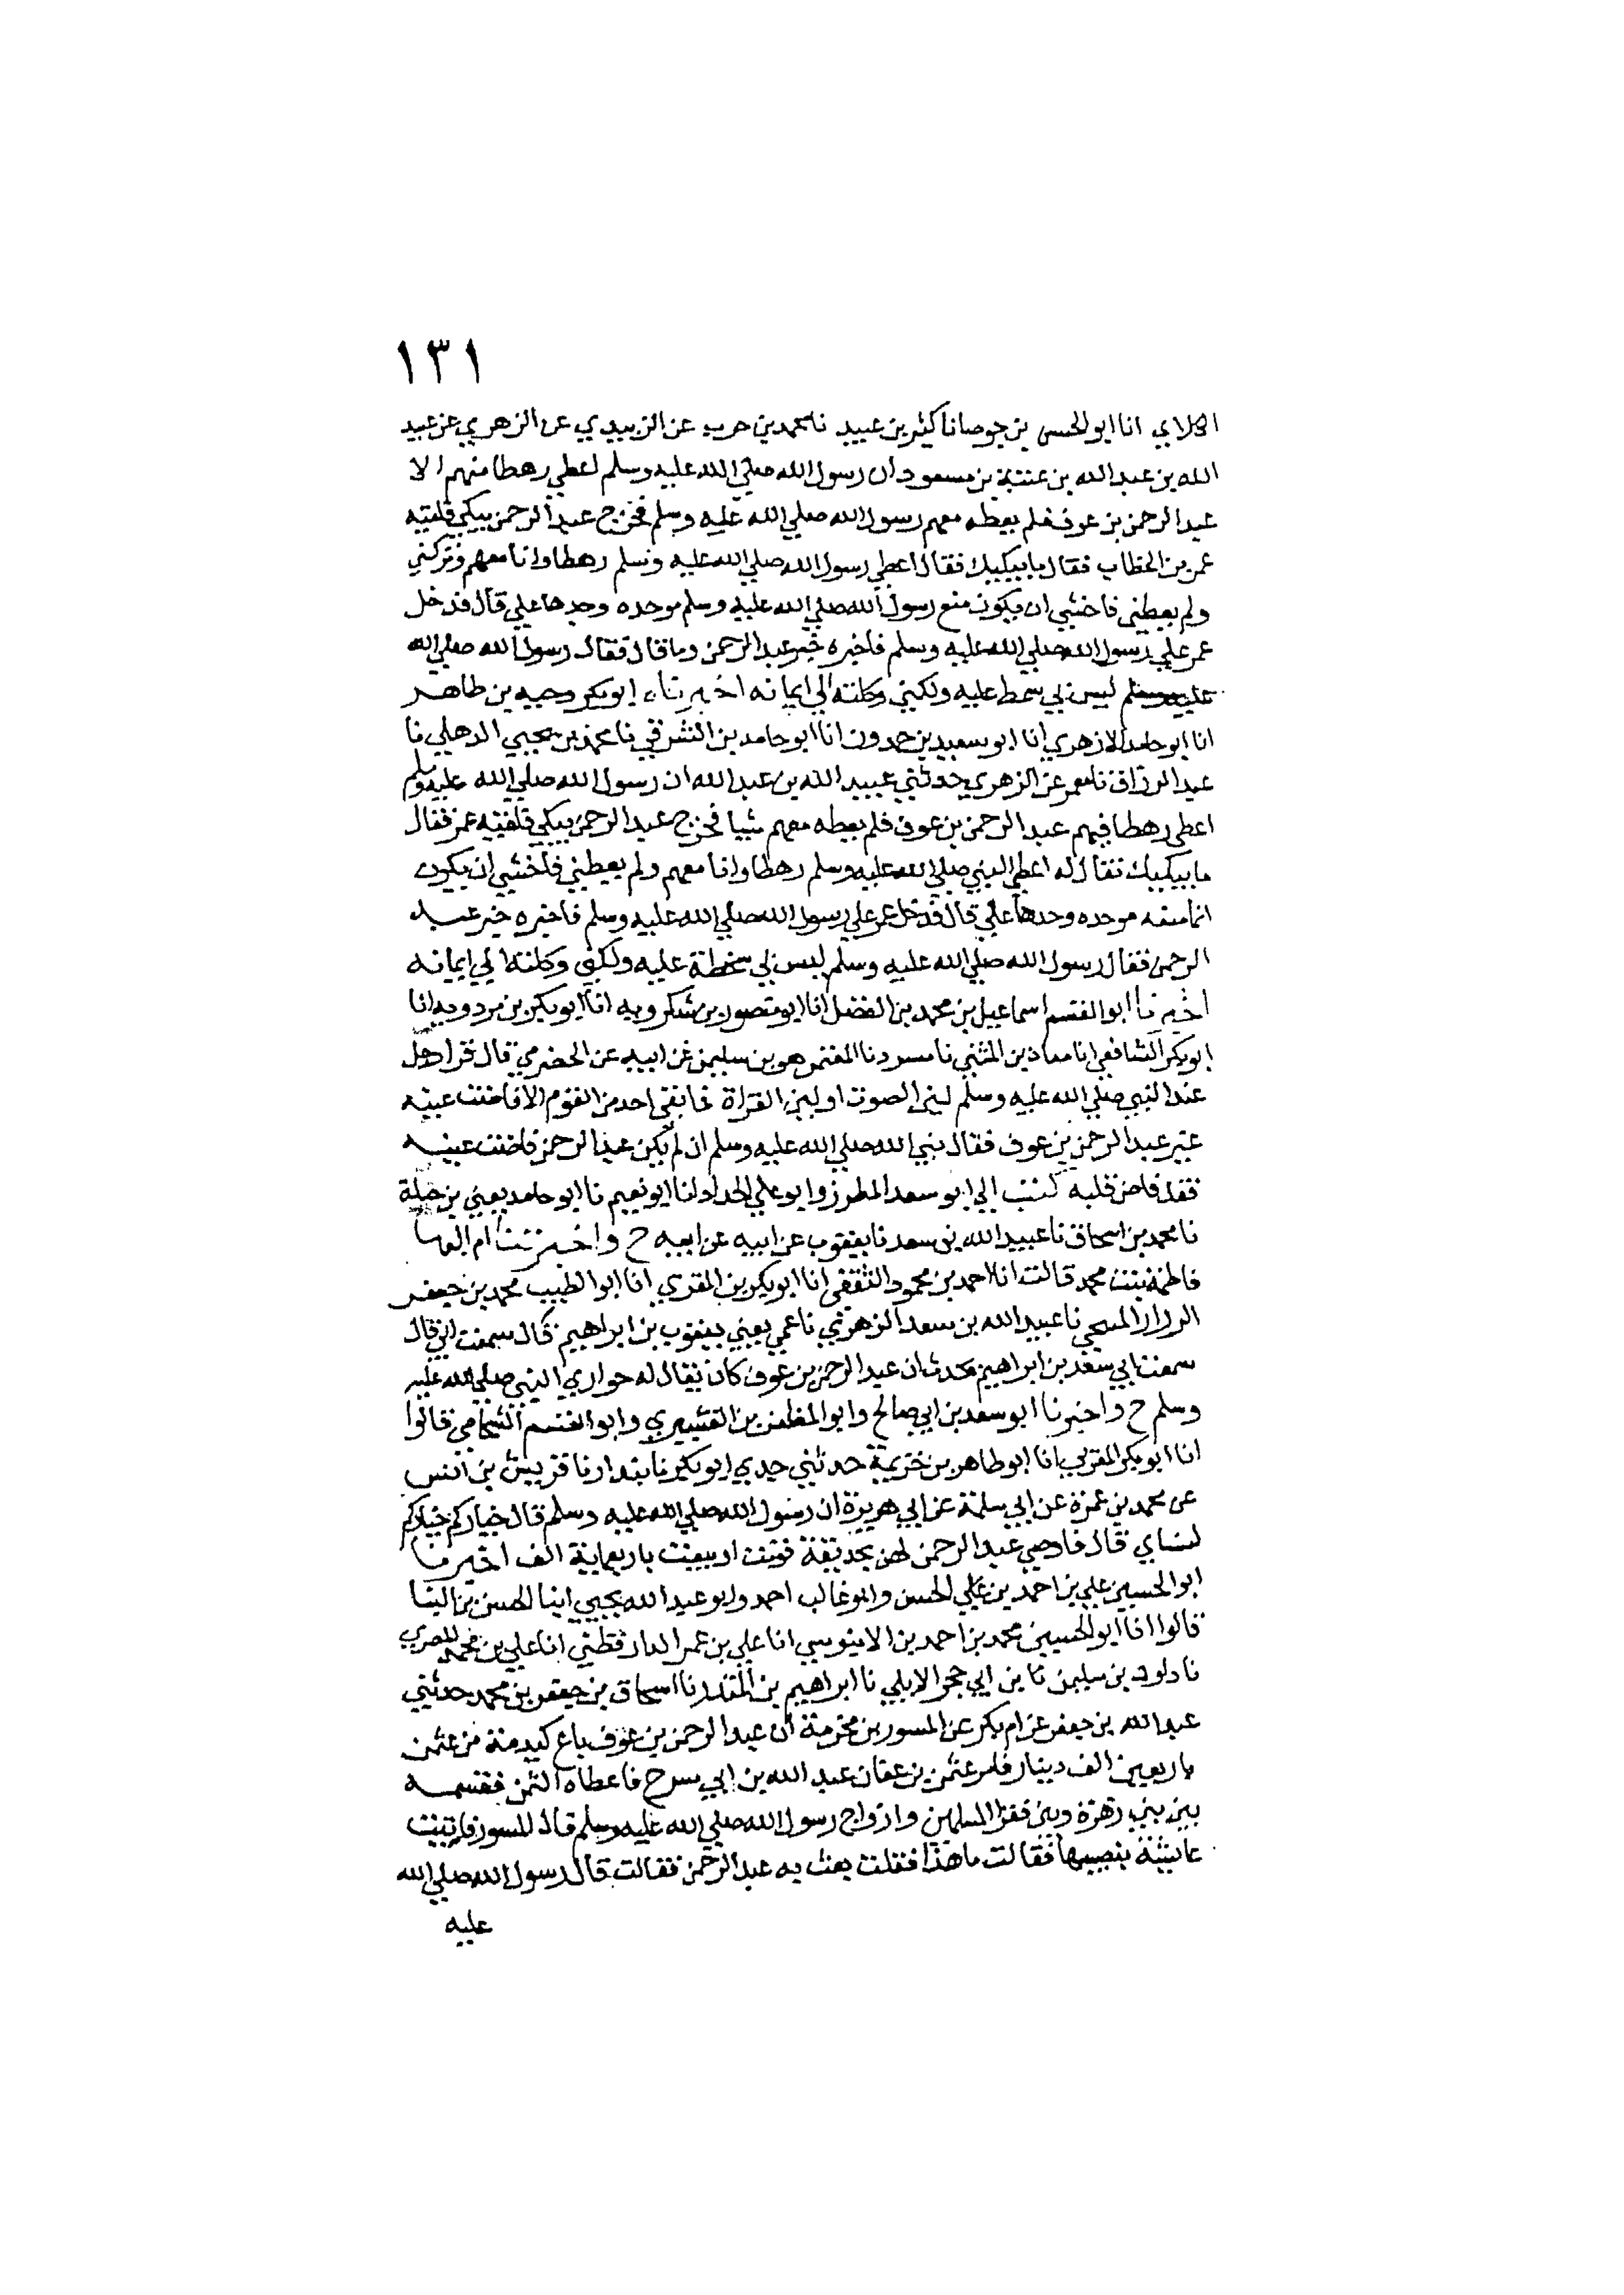 ١٣١
الكلابي انا ابو الحسن بن جوصا نا كثير بن عبيد نا محمد بن حرب عن الزبيدي عن الزهري عن عبيد
الله بن عبد الله بن عتبة بن مسعود ان رسول الله صلي الله عليه وسلم اعطي رهطا منهم الا
عبد الرحمن بن عوف فلم يعطه معهم رسول الله صلي الله عليه وسلم فخرج عبد الرحمن يبكي فلقيه
عمر بن الخطاب فقال ما يبكيك فقال اعطي رسول الله صلي الله عليه وسلم رهطا وانا معهم وتركني
ولم يعطني فاخشي ان يكون منع رسول الله صلي الله عليه وسلم موجده وجدها علي قال فدخل
عمر علي رسول الله صلي الله عليه وسلم فاخبره خبر عبد الرحمن وما قال فقال رسول الله صلي الله
عليه وسلم ليس بي سخط عليه ولكني وكلته الي ايمانه اخبرناه ابو بكر وجيه بن طاهر
انا ابو حامد الازهري انا ابو سعيد بن حمدون انا ابو حامد بن الشرقي نا محمد بن يحيي الذهلي نا
عبد الرزاق نا معمر عن الزهري حدثني عبيد الله بن عبد الله ان رسول الله صلي الله عليه وسلم
اعطي رهطا فيهم عبد الرحمن بن عوف فلم يعطه معهم شيا فخرج عبد الرحمن يبكي فلقيه عمر فقال
ما يبكيك فقال له اعطي النبي صلي الله عليه وسلم رهطا وانا معهم ولم يعطيني فاخشي ان يكون
انما منعه موجده وجدها علي قال فدخل عمر علي رسول الله صلي الله عليه وسلم فاخبره خبر عبد
الرحمن فقال رسول الله صلي الله عليه وسلم ليس بي سخطة عليه ولكني وكلته الي ايمانه
اخبرنا ابو القسم اسماعيل بن محمد بن الفضل انا ابو منصور بن شكرويه انا ابو بكر بن مردويه انا
ابو بكر الشافعي انا معاذ بن المثني نا مسدد نا المعتمر هو بن سليمن عن ابيه عن الحضرمي قال قرا رجل
عند النبي صلي الله عليه وسلم لين الصوت او لين القراة فما بقي احد من القوم الا فاضت عينه
غير عبد الرحمن بن عوف فقال نبي الله صلي الله عليه وسلم ان لم يكن عبد الرحمن فاضت عينه
فقد فاض قلبه كتب الي ابو سعد المطرز وابو علي الحداد انا ابو نعيم نا ابو حامد يعني بن جبلة
نا محمد بن اسحاق نا عبيد الله بن سعد نا يعقوب عن ابيه عن ابيه ح واخبرتنا ام البها
فاطمة بنت محمد قالت انا احمد بن محمود الثقفي انا ابو بكر بن المقري انا ابو الطيب محمد بن جعفر
الزراد المنبجي نا عبيد الله بن سعد الزهري نا عمي يعني يعقوب بن ابراهيم قال سمعت ابي قال
سمعت ابي سعد بن ابراهيم يحدث ان عبد الرحمن بن عوف كان يقال له حواري النبي صلي الله عليه
وسلم ح واخبرنا ابو سعد بن ابي صالح وابو المظفر بن القشيري وابو القسم الشحامي قالوا
انا ابو بكر المغربي انا ابو طاهر بن خزيمة حدثني جدي ابو بكر نا بندار نا قريش بن انس
عن محمد بن عمرو عن ابي سلمة عن ابي هريرة ان رسول الله صلي الله عليه وسلم قال خياركم خياركم
لنساي قال فاوصي عبد الرحمن لهن بحديقة قومت او بيعت باربعماية الف اخبرنا
ابو الحسين علي بن احمد بن علي الحسن وابو غالب احمد وابو عبد الله يحيي ابنا الحسن بن البنا
قالوا انا ابو الحسين محمد بن احمد بن الابنوسي انا علي بن عمر الدارقطني انا علي بن محمد المصري
نا داود بن سليمن نا بن ابي حجر الايلي نا ابراهيم بن المنذر نا اسحاق بن جعفر بن محمد حدثني
عبد الله بن جعفر عن ام بكر عن المسور بن مخرمة ان عبد الرحمن بن عوف باع كيدمة من عثمن
باربعين الف دينار فامر عثمن بن عفان عبد الله بن ابي سرح فاعطاه الثمن فقسمه
بين بني زهرة وبين فقرا المسلمين وازواج رسول الله صلي الله عليه وسلم قال المسور فاتيت
عايشة بنصيبها فقالت ما هذا فقلت بعث به عبد الرحمن فقالت قال رسول الله صلي الله
عليه